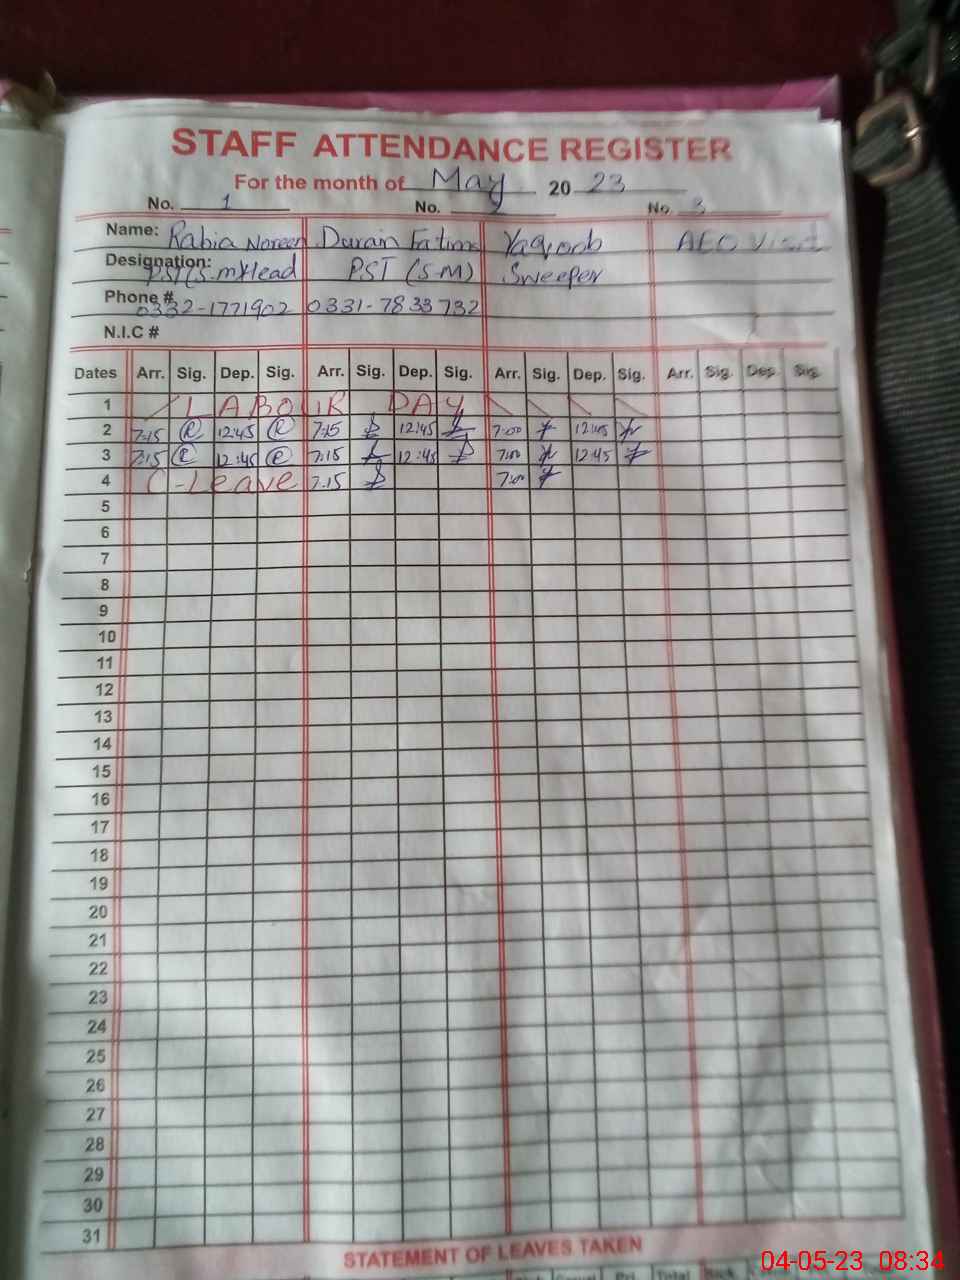 STAFF ATTENDANCE REGISTER
For the month of May 2023
No. 1 No. 2 No. 3
Name: Rabia Noreen Durain Fatima Yaqoob AEO Visit
Designation: PST(S.M)Head PST (S-M) Sweeper
Phone #. 0332-1771902 0331-7833732
N.I.C #
Dates Arr. Sig. Dep. Sig. Arr. Sig. Dep. Sig. Arr. Sig. Dep. Sig. Arr. Sig. Dep. Sig.
1 LABOUR DAY
2 7:15 12:45 7:15 12:45 7:00 12:45
3 7:15 12:45 7:15 12:45 7:00 12:45
4 C-Leave 7:15 7:00
5
6
7
8
9
10
11
12
13
14
15
16
17
18
19
20
21
22
23
24
25
26
27
28
29
30
31
STATEMENT OF LEAVES TAKEN
04-05-23 08:34